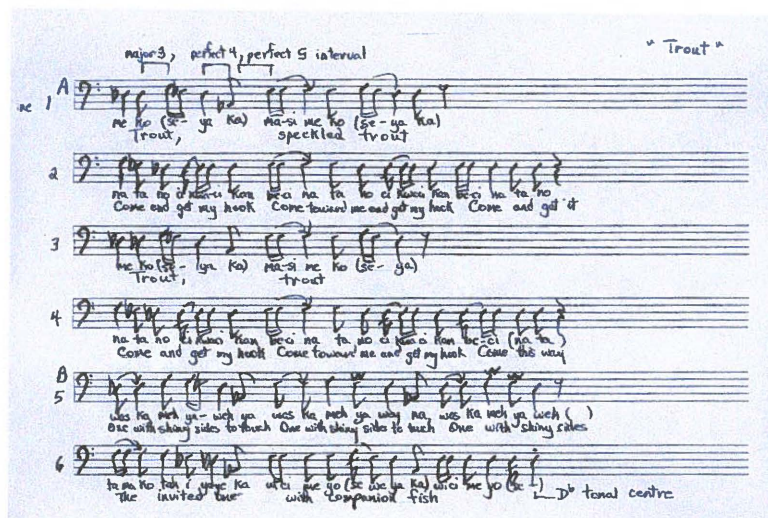 major 3, perfect 4, perfect 5 interval
"Trout"
A
1
me ko (se - ya ka) ma-si me ko (se - ya ka)
Trout, speckled trout
2
na ta no ci kwa-ci kan be-ci na ta no ci kwaci kan be-ci na ta no
Come and get my hook Come toward me and get my hook Come and get it
3
me ko (se - ya ka) ma-si me ko (se - ya)
Trout, trout
4
na ta no ci kwaci kan be-ci na ta no ci kwaci kan be-ci (na ta )
Come and get my hook Come toward me and get my hook Come this way
B
5
was ka meh ya - weh ya was ka meh ya way na, was ka meh ya weh ( )
One with shiny sides to touch One with shiny sides to touch One with shiny sides
6
ta na ko tah i ya ka wici me yo (se we ya ka) wici me yo (se )
The invited one with companion fish
Db tonal centre